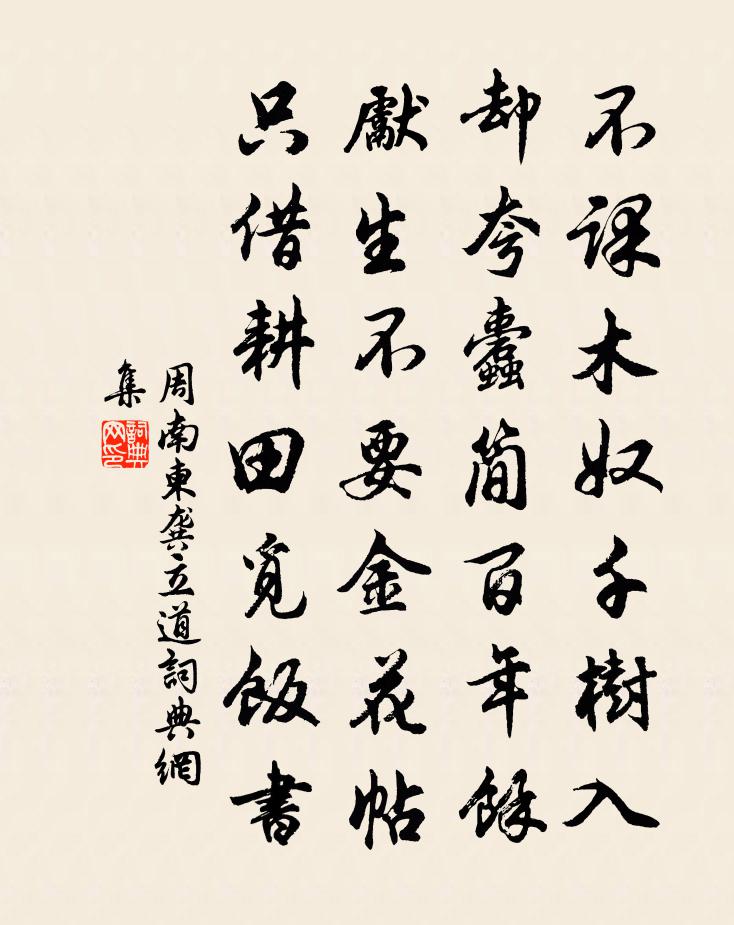 不課木奴千樹入
却夸蠹簡百年餘
獻生不要金花帖
只借耕田覓飯書
周南東龔立道詞典網
集
詞典
网印